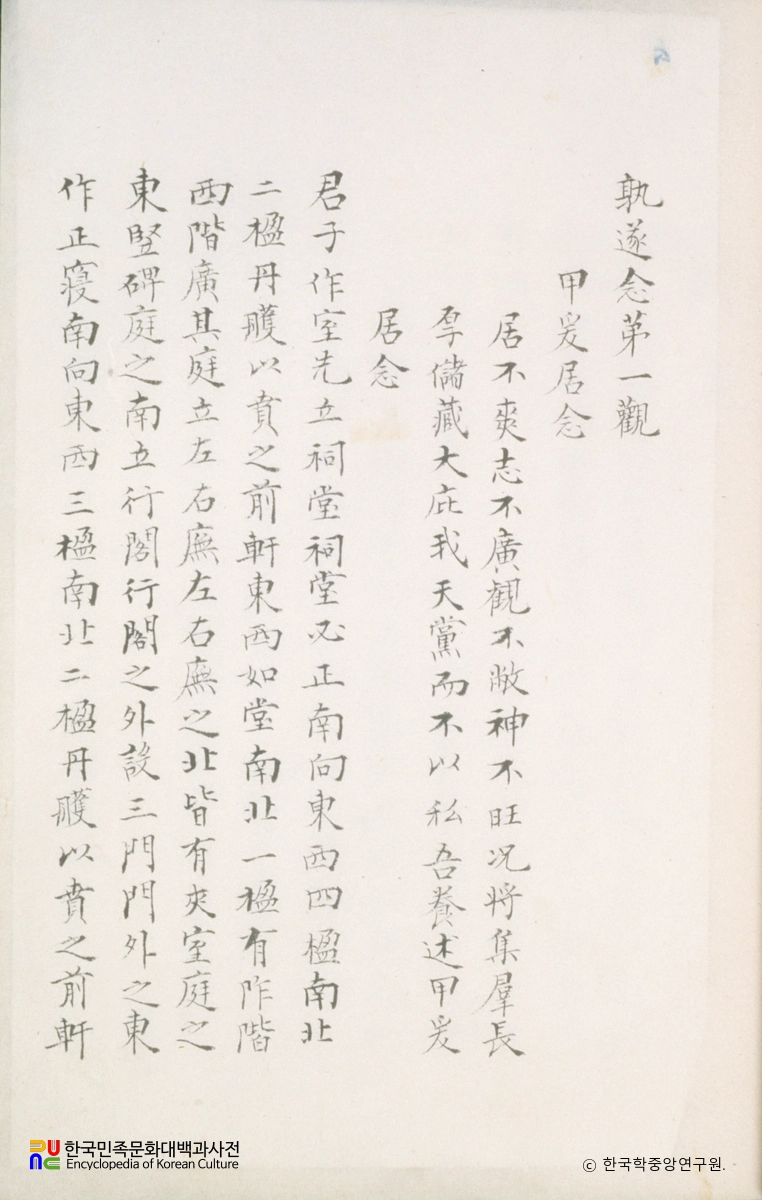 孰遂念第一觀
甲爰居念
居不爽志不廣觀不敞神不旺况將集羣長
孚儲藏大庇我天黨而不以私吾養述甲爰
居念
君子作室先立祠堂祠堂必正南向東西四楹南北
二楹丹雘以賁之前軒東西如堂南北一楹有阼階
西階廣其庭立左右廡左右廡之北皆有夾室庭之
東竪碑庭之南立行閣行閣之外設三門門外之東
作正寢南向東西三楹南北二楹丹雘以賁之前軒
한국민족문화대백과사전
Encyclopedia of Korean Culture
© 한국학중앙연구원.